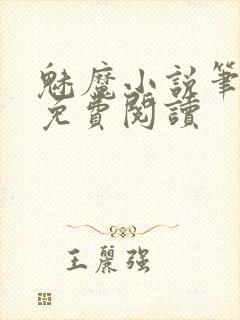 魅魔小說筆
免費閱讀
王麗強